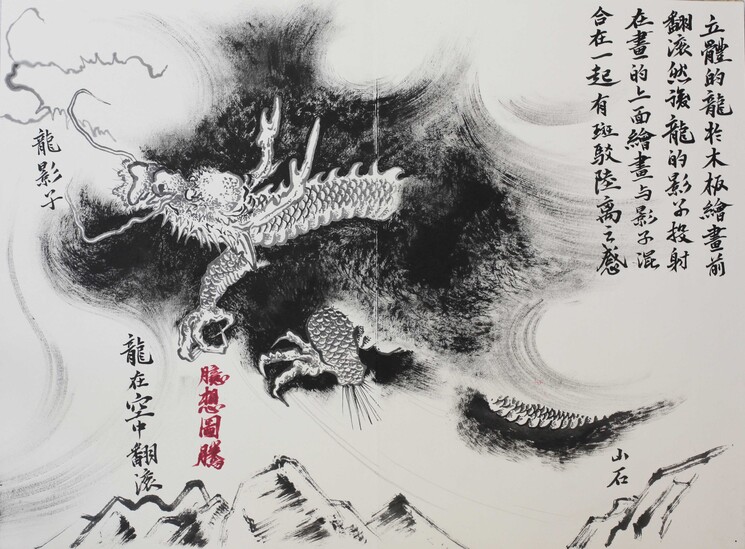 立體的龍於木板繪畫前
翻滾然後龍的影子投射
在畫的上面繪畫與影子混
合在一起有斑駁陸離之感
龍影子
龍在空中翻滾
臆想圖騰
山石